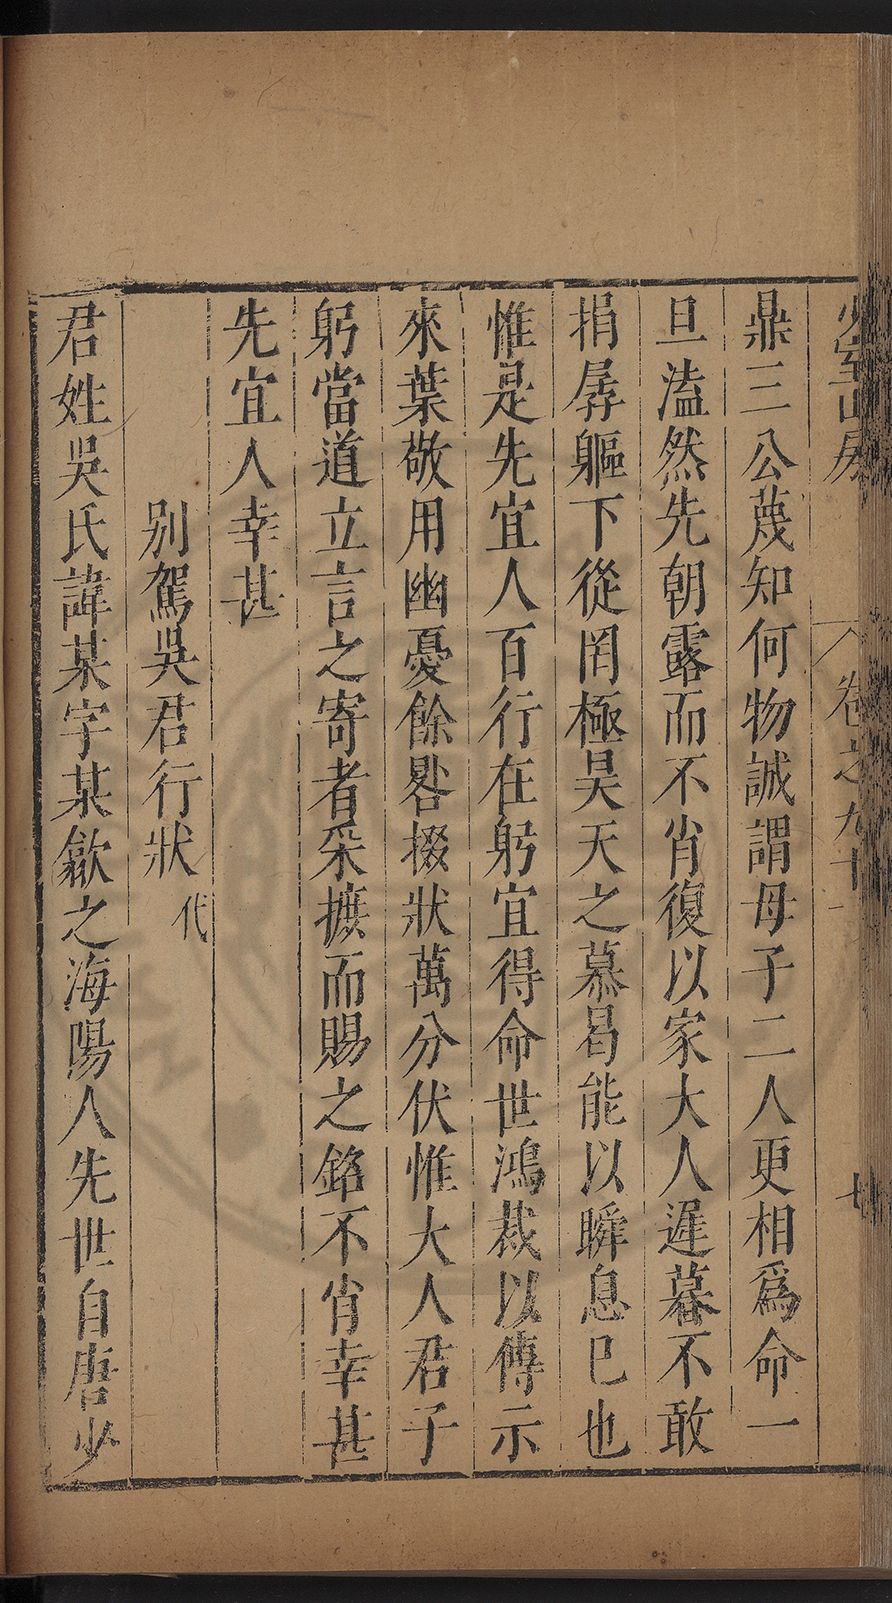 少室山房
卷之九十
七
鼎三公蔑知何物誠謂母子二人更相爲命一
旦溘然先朝露而不肖復以家大人遲暮不敢
捐孱軀下從罔極昊天之慕曷能以瞬息已也
惟是先宜人百行在躬宜得命世鴻裁以傳示
來葉敬用幽憂餘晷掇狀萬分伏惟大人君子
躬當道立言之寄者采摭而賜之銘不肖幸甚
先宜人幸甚
別駕吳君行狀 代
君姓吳氏諱某字某歙之海陽人先世自唐少